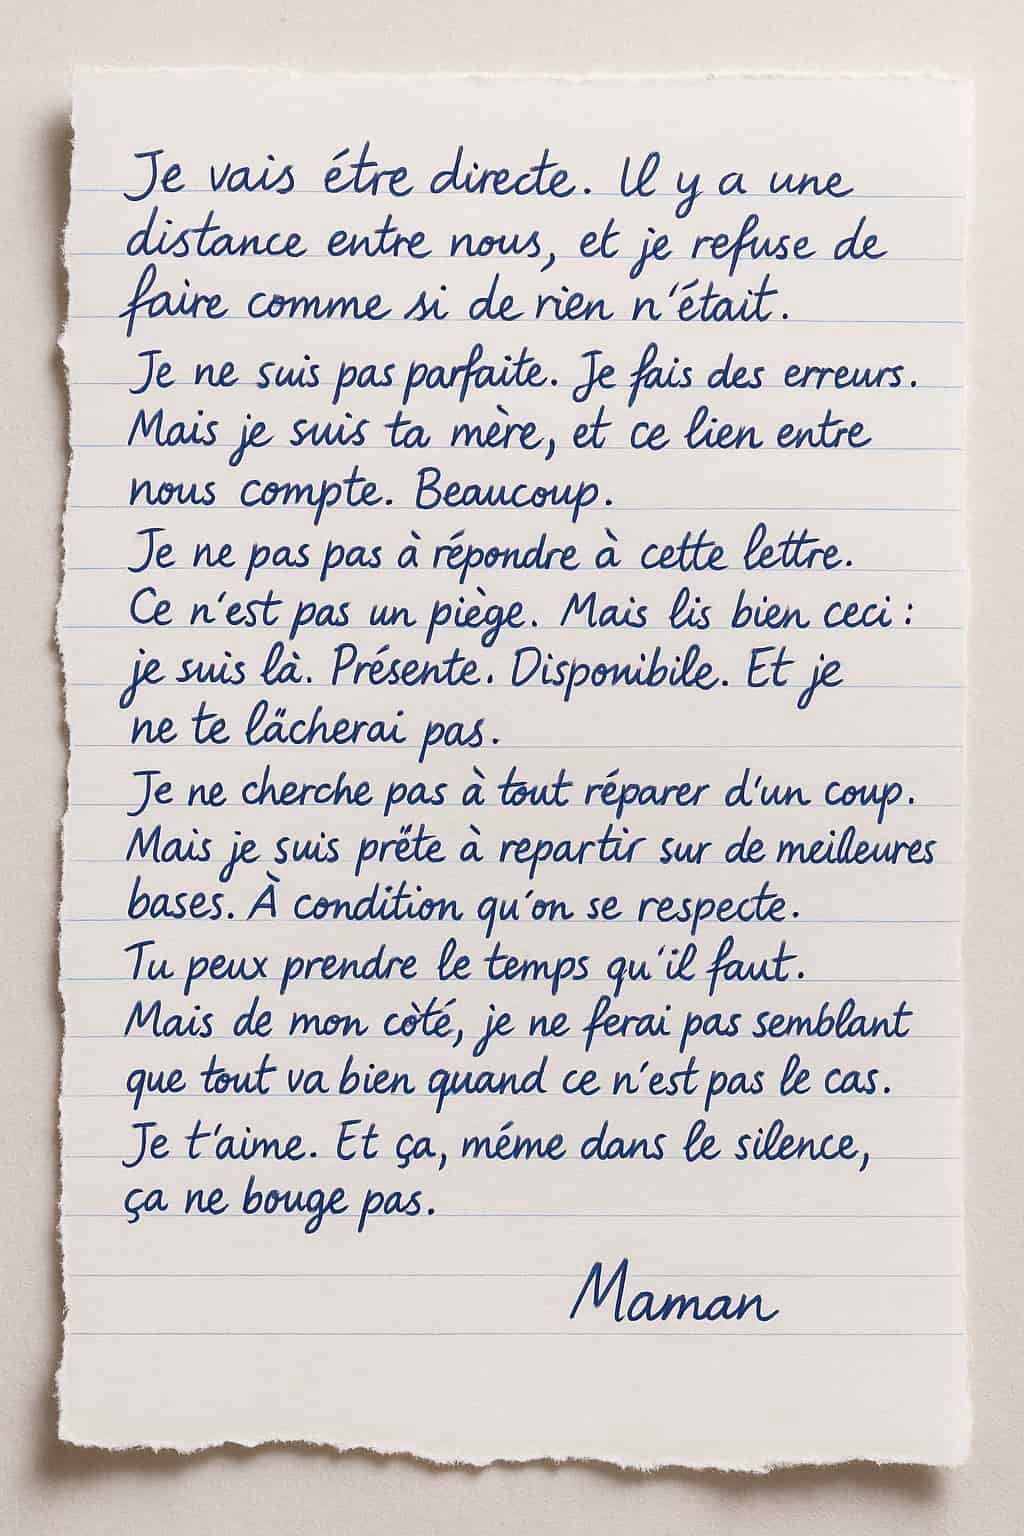 Je vais étre directe. Il y a une
distance entre nous, et je refuse de
faire comme si de rien n'était.
Je ne suis pas parfaite. Je fais des erreurs.
Mais je suis ta mère, et ce lien entre
nous compte. Beaucoup.
Je ne pas pas à répondre à cette lettre.
Ce n'est pas un piège. Mais lis bien ceci :
je suis là. Présente. Disponibile. Et je
ne te lächerai pas.
Je ne cherche pas à tout réparer d'un coup.
Mais je suis prête à repartir sur de meilleures
bases. À condition qu'on se respecte.
Tu peux prendre le temps qu'il faut.
Mais de mon còté, je ne ferai pas semblant
que tout va bien quand ce n'est pas le cas.
Je t'aime. Et ça, méme dans le silence,
ça ne bouge pas.
Maman